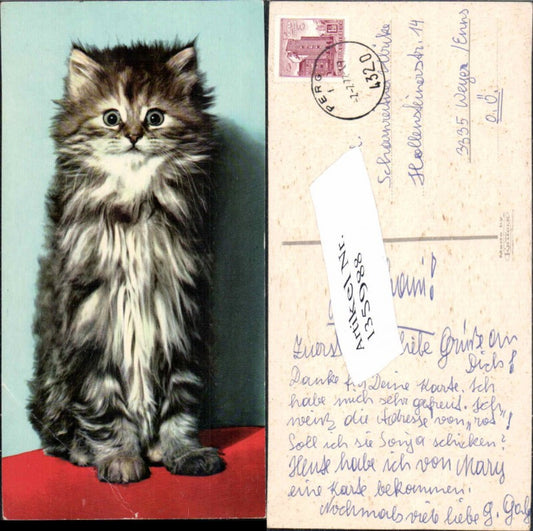 PERG
1
4320
Scharnreitner Ulrike
Hollensteinerstr. 14
3335 Weyer/Enns
O.Ö.
Made by
Artikel Nr.
135988
Zuerst liebe Grüße an
Dich!
Danke für Deine Karte. Ich
habe mich sehr gefreut. Ich
die Adresse von
Soll ich sie Sonja schicken?
Heute habe ich von Mary
eine Karte bekommen.
Nochmals viele liebe G.